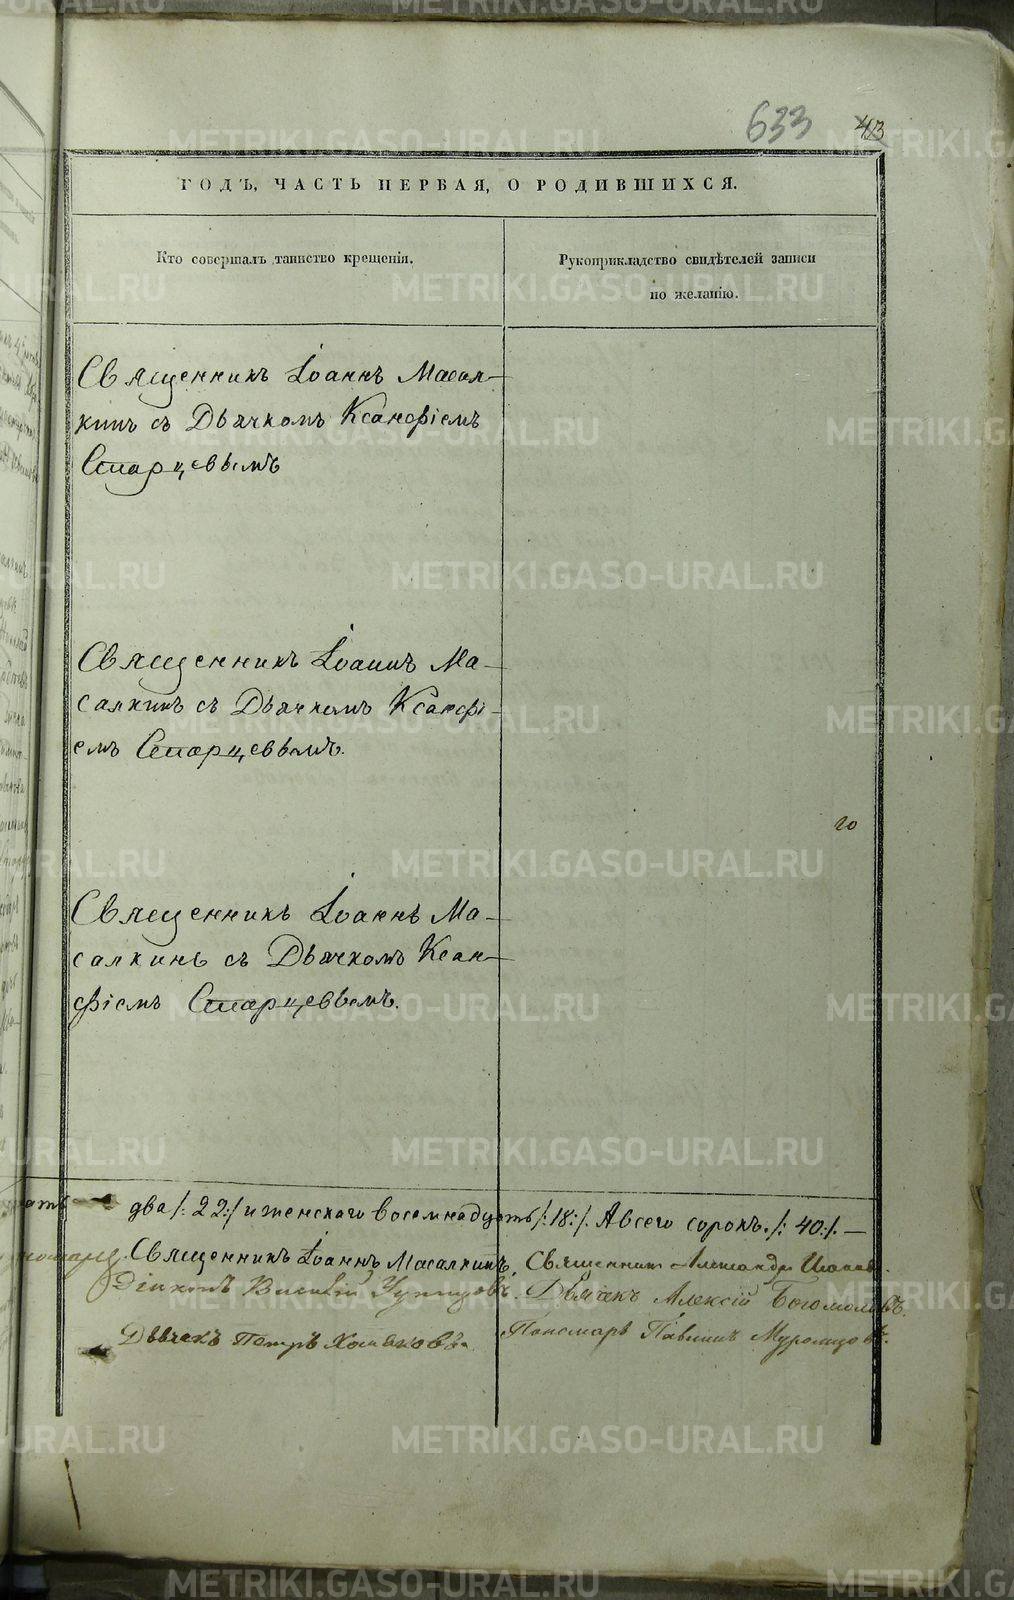 633 43
ГОДЪ, ЧАСТЬ ПЕРВАЯ, О РОДИВШИХСЯ.
Кто совершалъ таинство крещенія.
Рукоприкладство свидѣтелей записи
по желанію.
Священникъ Іоаннъ Масал-
кинъ съ Дьячкомъ Ксанфіемъ
Старцевымъ
Священникъ Іоаннъ Ма-
салкинъ съ Дьячкомъ Ксанфі-
емъ Старцевымъ.
го
Священникъ Іоаннъ Ма-
салкинъ съ Дьячкомъ Ксан-
фіемъ Старцевымъ.
два /: 22:/ и женскаго восемнадцать /: 18:/. А всего сорокъ. /: 40:/. —
Священникъ Іоаннъ Масалкинъ, Священникъ Александръ
Діаконъ Василій Дьячекъ Алексій Богомоловъ.
Дьячекъ Петръ Хомяковъ. Пономарь Павлинъ Муромцовъ.
METRIKI.GASO-URAL.RU